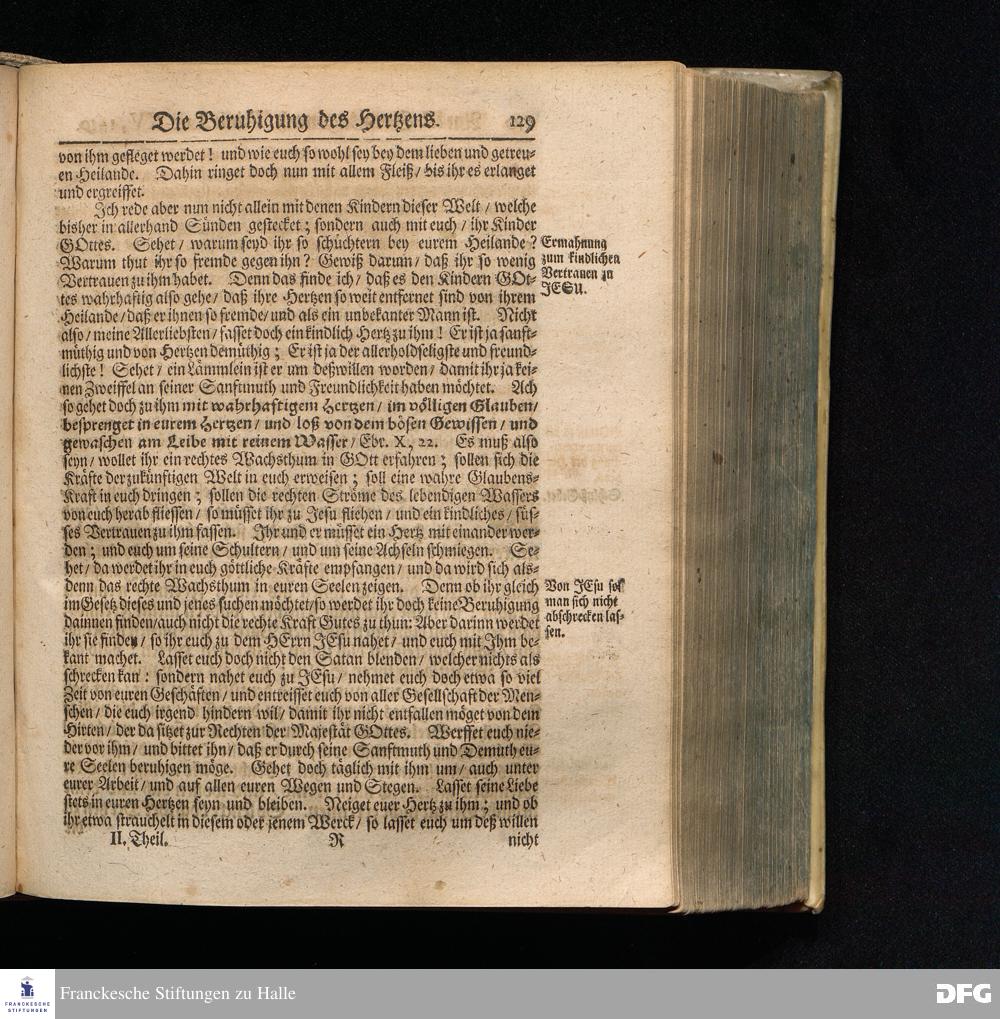 Die Beruhigung des Hertzens. 129
von ihm gepfleget werdet! und wie euch so wohl sey bey dem lieben und getreu-
en Heilande. Dahin ringet doch nun mit allem Fleiß/ bis ihr es erlanget
und ergreiffet.
Ich rede aber nun nicht allein mit denen Kindern dieser Welt / welche
bisher in allerhand Sünden gestecket; sondern auch mit euch / ihr Kinder
GOttes. Sehet / warum seyd ihr so schüchtern bey eurem Heilande?
Warum thut ihr so fremde gegen ihn? Gewiß darum / daß ihr so wenig
Vertrauen zu ihm habet. Denn das finde ich / daß es den Kindern GOt-
tes wahrhaftig also gehe / daß ihre Hertzen so weit entfernet sind von ihrem
Heilande / daß er ihnen so fremde / und als ein unbekanter Mann ist. Nicht
also / meine Allerliebsten / fasset doch ein kindlich Hertz zu ihm! Er ist ja sanft-
müthig und von Hertzen demüthig; Er ist ja der allerholdseligste und freund-
lichste! Sehet / ein Lämmlein ist er um deßwillen worden / damit ihr ja kei-
nen Zweiffel an seiner Sanftmuth und Freundlichkeit haben möchtet. Ach
so gehet doch zu ihm mit wahrhaftigem Hertzen / im völligen Glauben/
besprenget in eurem Hertzen / und loß von dem bösen Gewissen / und
gewaschen am Leibe mit reinem Wasser / Ebr. X, 22. Es muß also
seyn / wollet ihr ein rechtes Wachsthum in GOtt erfahren; sollen sich die
Kräfte der zukünftigen Welt in euch erweisen; soll eine wahre Glaubens-
Kraft in euch dringen; sollen die rechten Ströme des lebendigen Wassers
von euch herab fliessen / so müsset ihr zu Jesu fliehen / und ein kindliches / süs-
ses Vertrauen zu ihm fassen. Ihr und er müsset ein Hertz mit einander wer-
den; und euch um seine Schultern / und um seine Achseln schmiegen. Se-
het / da werdet ihr in euch göttliche Kräfte empfangen / und da wird sich als-
denn das rechte Wachsthum in euren Seelen zeigen. Denn ob ihr gleich
im Gesetz dieses und jenes suchen möchtet / so werdet ihr doch keine Beruhigung
darinnen finden / auch nicht die rechte Kraft Gutes zu thun: Aber darinn werdet
ihr sie finden / so ihr euch zu dem HErrn JEsu nahet / und euch mit Ihm be-
kant machet. Lasset euch doch nicht den Satan blenden / welcher nichts als
schrecken kan: sondern nahet euch zu JEsu / nehmet euch doch etwa so viel
Zeit von euren Geschäften / und entreisset euch von aller Gesellschaft der Men-
schen / die euch irgend hindern wil / damit ihr nicht entfallen möget von dem
Hirten / der da sitzet zur Rechten der Majestät GOttes. Werffet euch nie-
der vor ihm / und bittet ihn / daß er durch seine Sanftmuth und Demuth eu-
re Seelen beruhigen möge. Gehet doch täglich mit ihm um / auch unter
eurer Arbeit / und auf allen euren Wegen und Stegen. Lasset seine Liebe
stets in euren Hertzen seyn und bleiben. Neiget euer Hertz zu ihm; und ob
ihr etwa strauchelt in diesem oder jenem Werck / so lasset euch um deß willen
II. Theil. R nicht
Ermahnung
zum kindlichen
Vertrauen zu
JESU.
Von JEsu sol
man sich nicht
abschrecken las-
sen.
FRANCKESCHE
STIFTUNGEN
Franckesche Stiftungen zu Halle
DFG